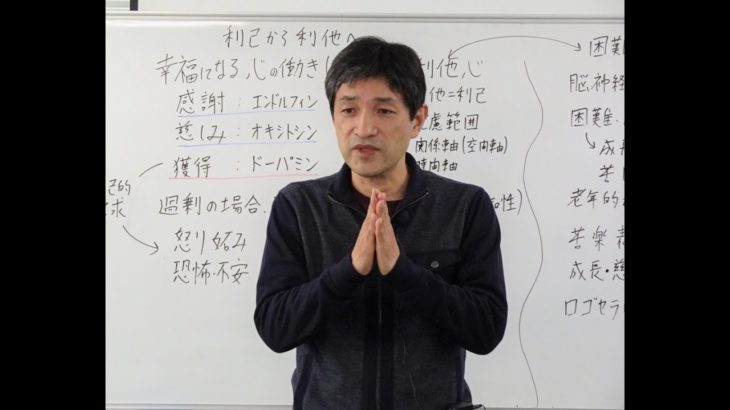 利己から利他へ
幸福になる心の働き(
感謝：エンドルフィン
慈しみ：オキシトシン
獲得：ドーパミン
過剰の場合
怒り 妬み
恐怖・不安
利他心
他＝利己
慮範囲
関係軸(空間軸)
時間軸
性)
己的
求
困難
脳神経
困難
成長
老年的
苦楽
成長・慈
ロゴセラ